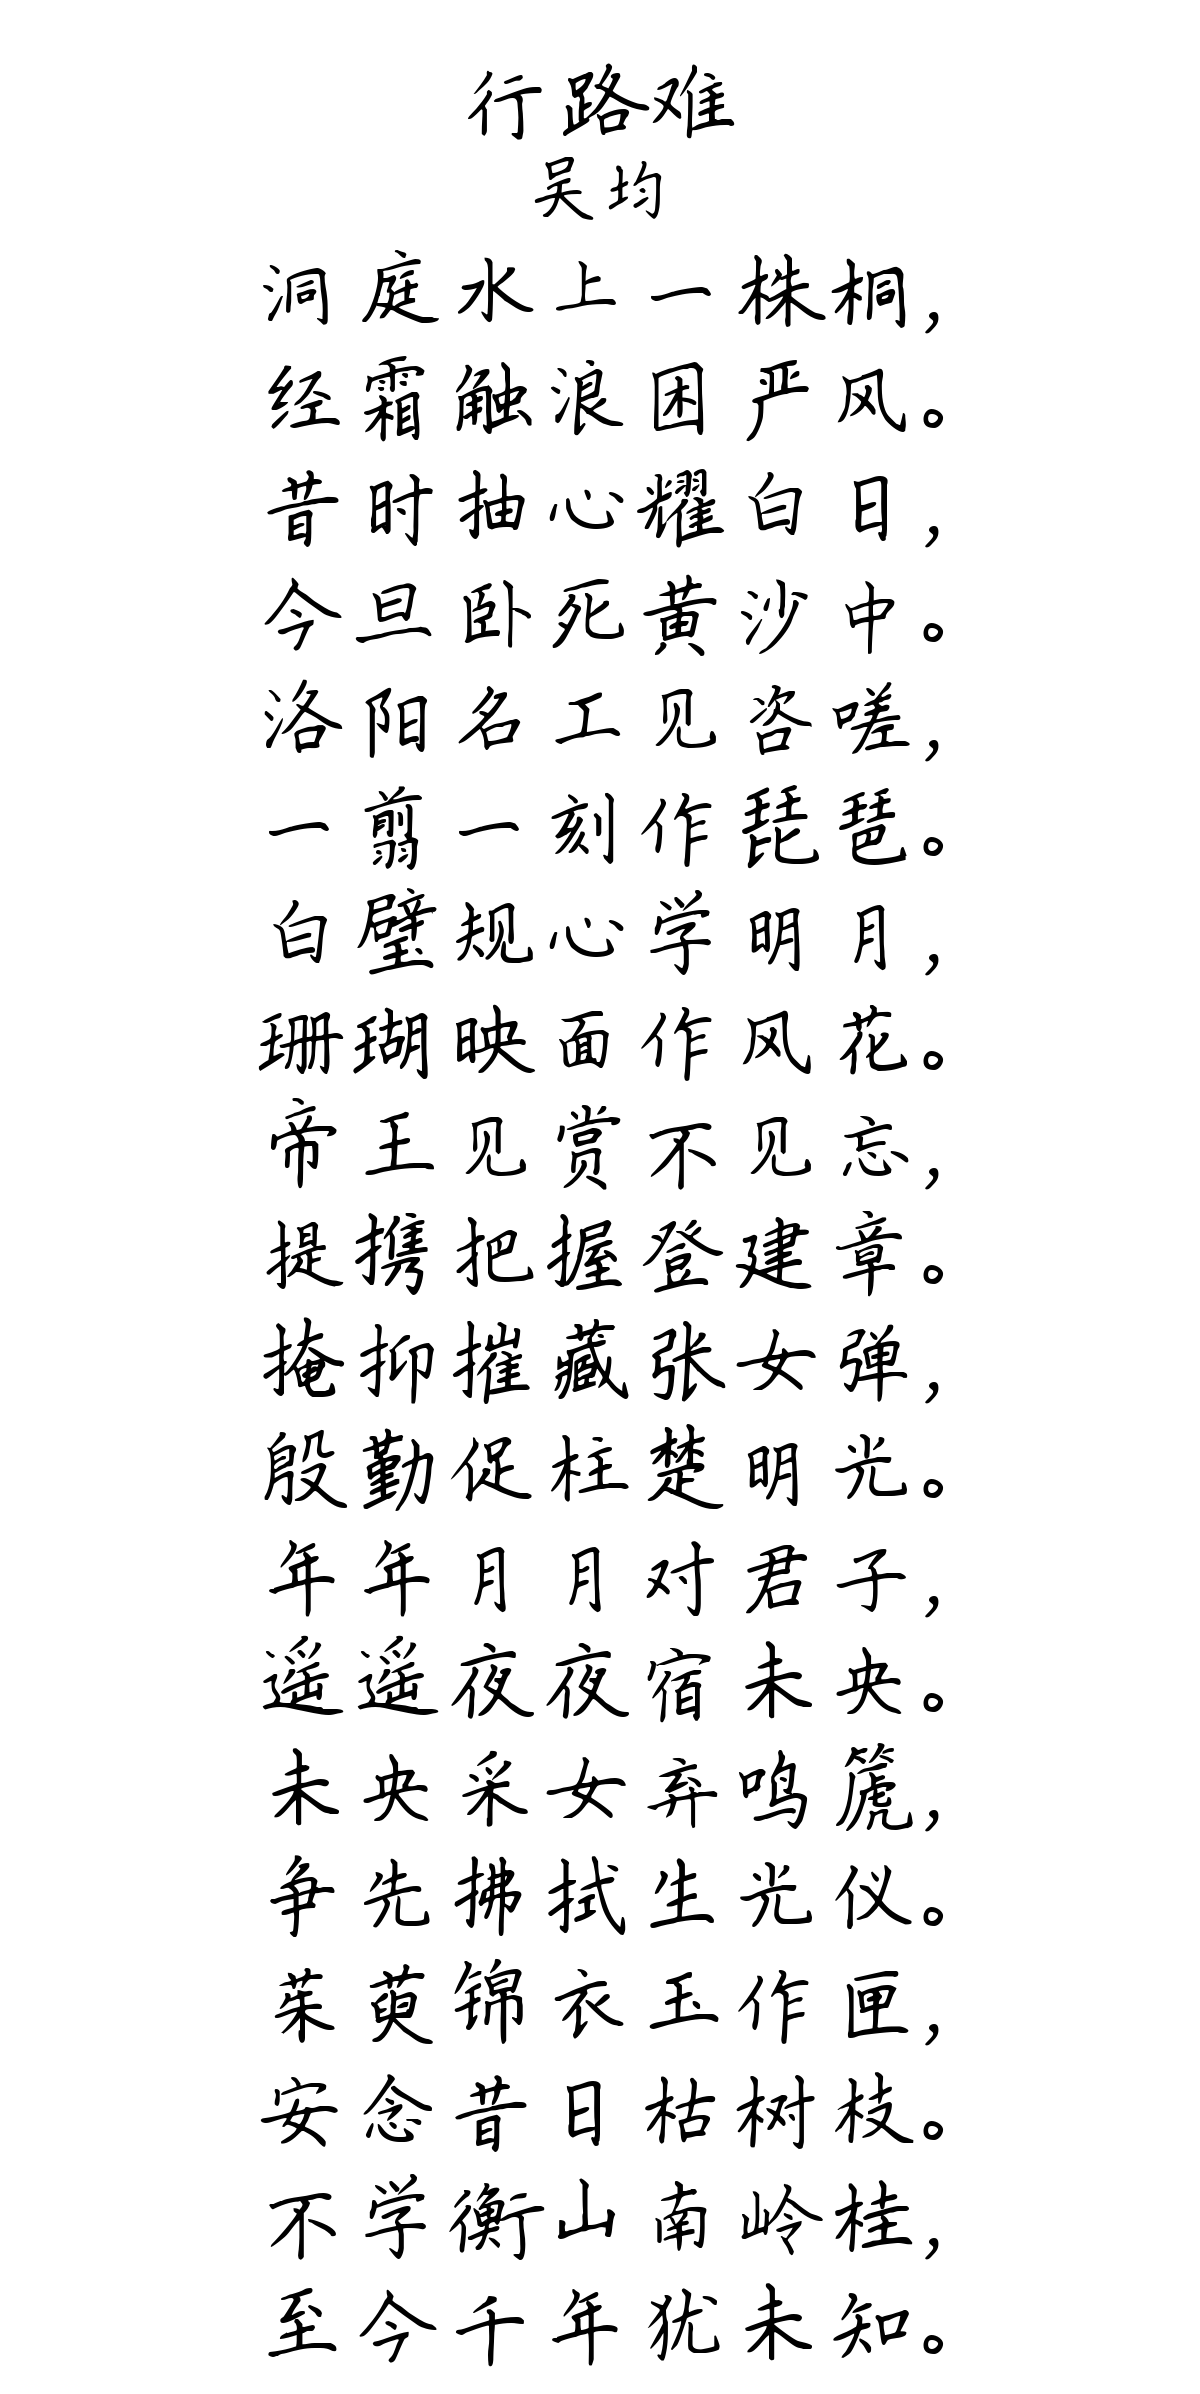 行路难
吴均
洞庭水上一株桐，
经霜触浪困严风。
昔时抽心耀白日，
今旦卧死黄沙中。
洛阳名工见咨嗟，
一剪一刻作琵琶。
白璧规心学明月，
珊瑚映面作风花。
帝王见赏不见忘，
提携把握登建章。
掩抑摧藏张女弹，
殷勤促柱楚明光。
年年月月对君子，
遥遥夜夜宿未央。
未央采女弃鸣篪，
争先拂拭生光仪。
茱萸锦衣玉作匣，
安念昔日枯树枝。
不学衡山南岭桂，
至今千年犹未知。